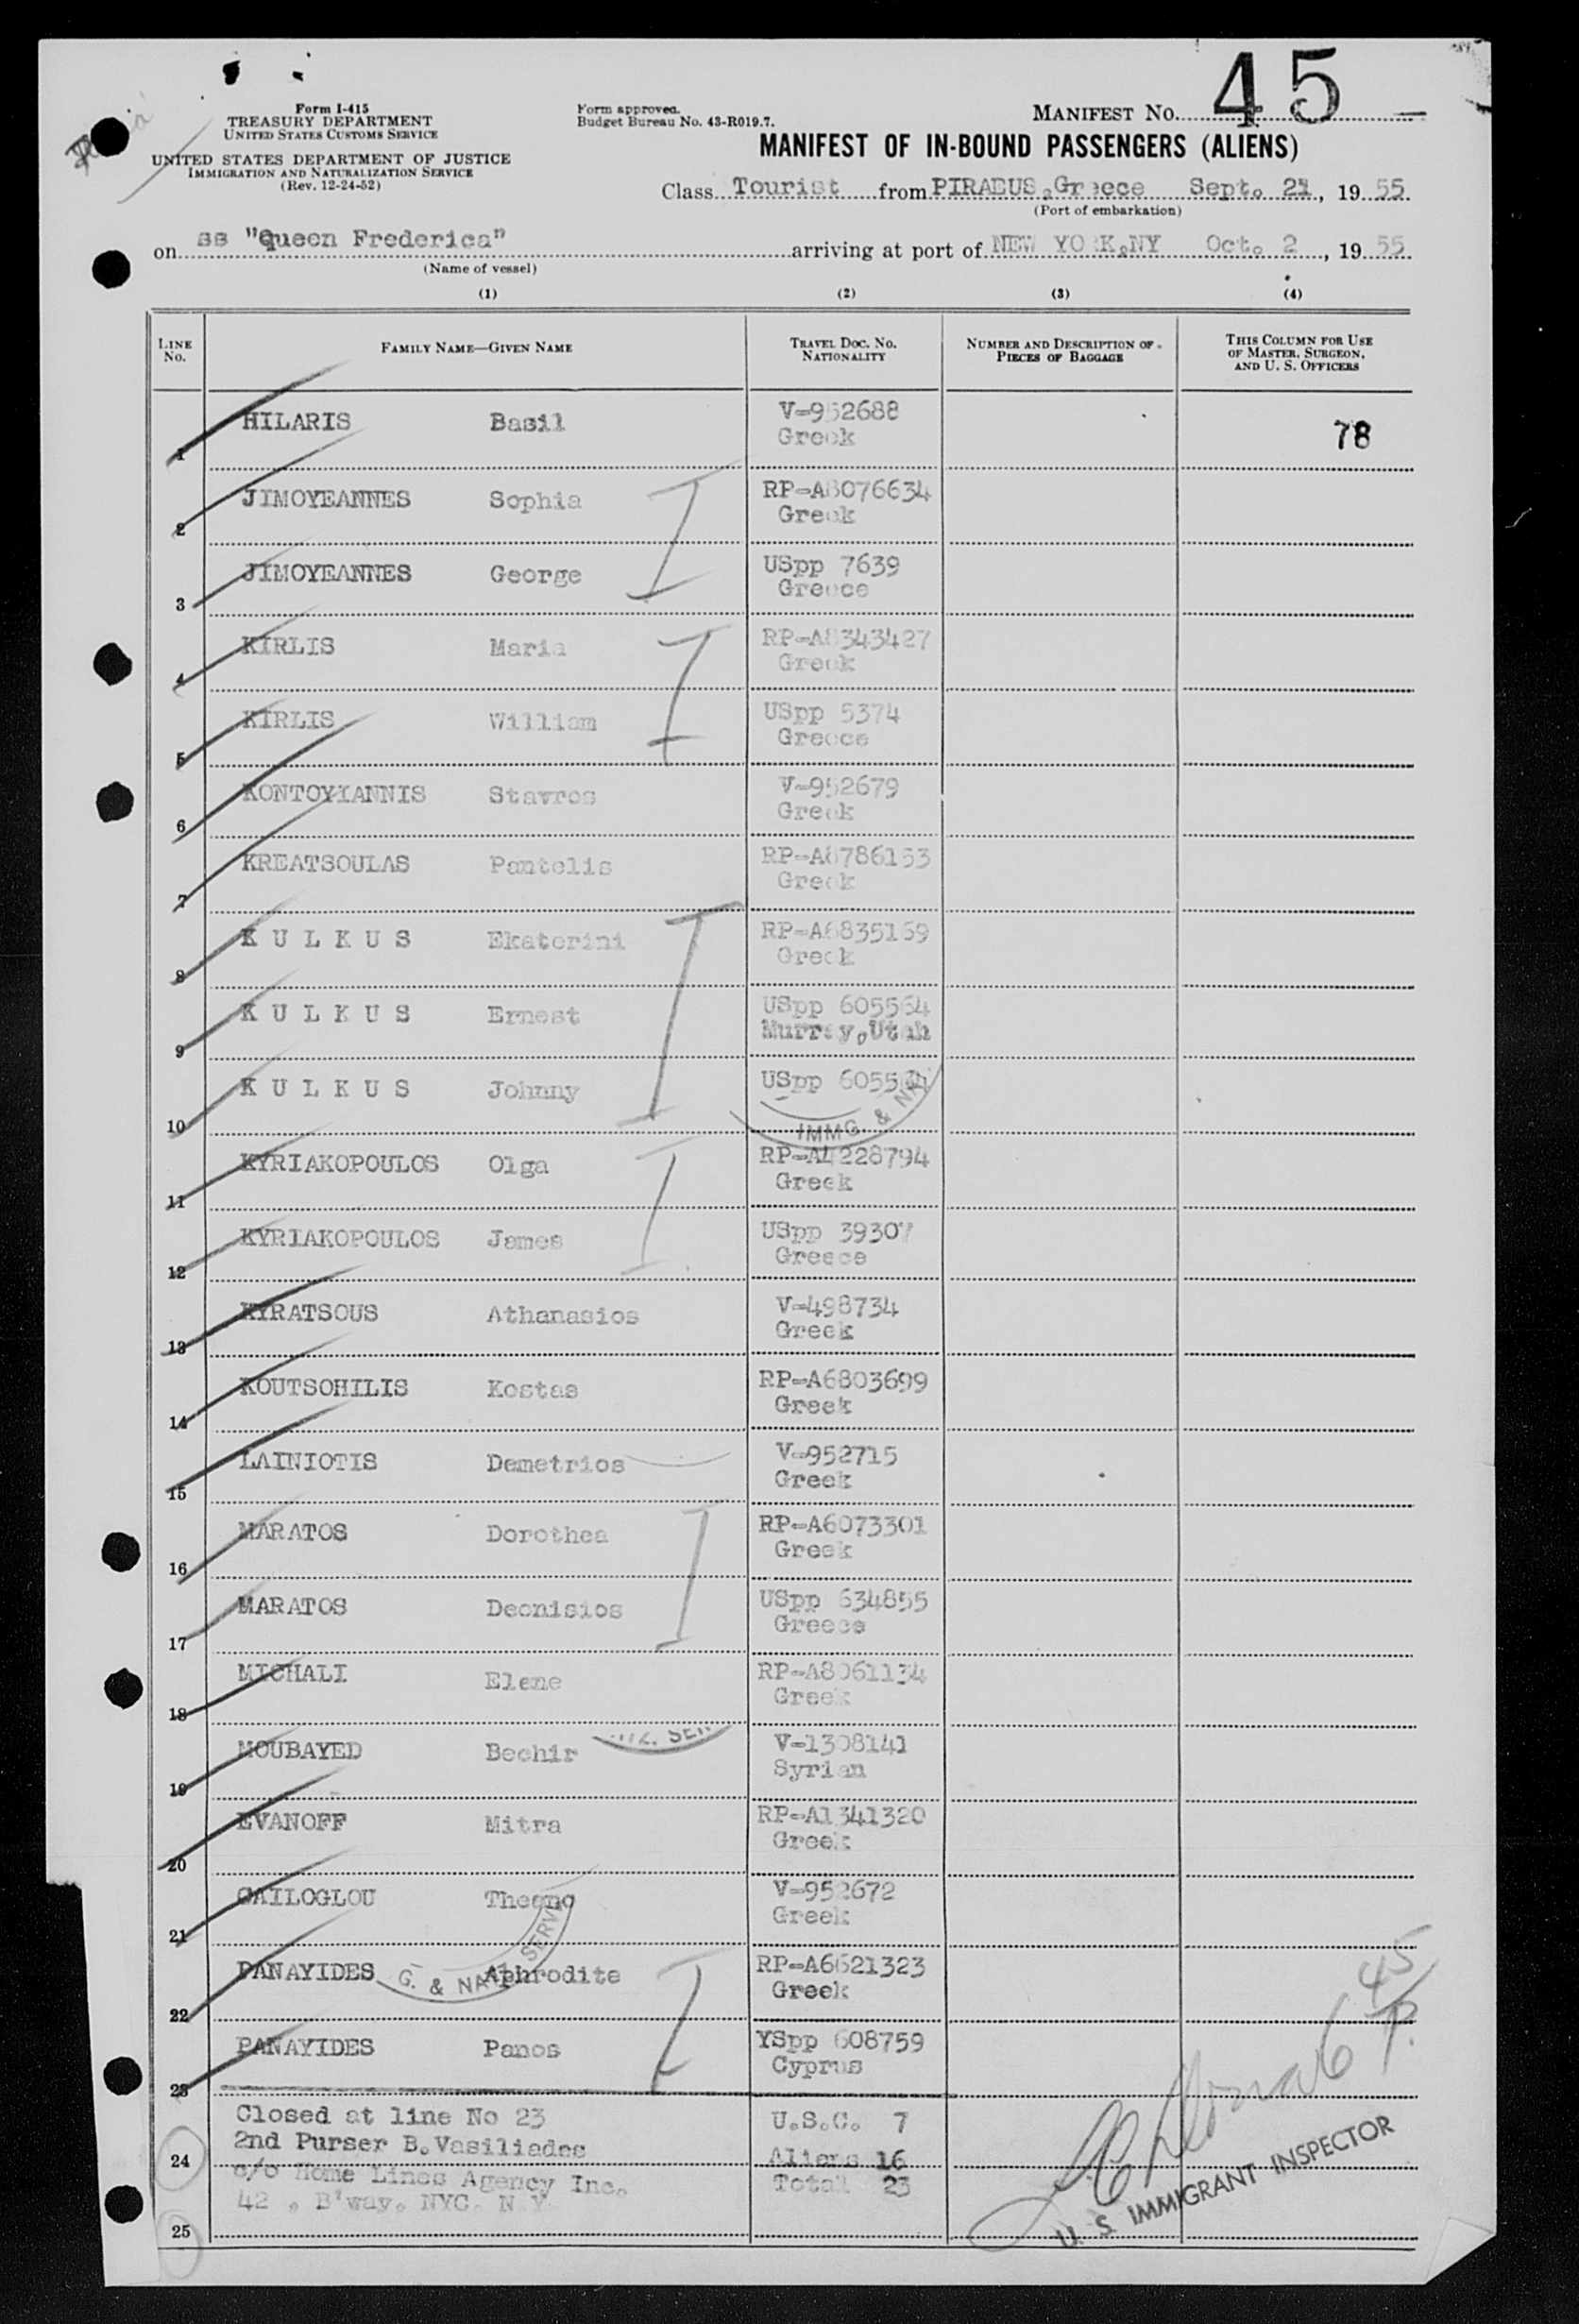 45
Form I-415
TREASURY DEPARTMENT
UNITED STATES CUSTOMS SERVICE
UNITED STATES DEPARTMENT OF JUSTICE
IMMIGRATION AND NATURALIZATION SERVICE
(Rev. 12-24-52)
Form approved.
Budget Bureau No. 43-R019.7.
MANIFEST No.
MANIFEST OF IN-BOUND PASSENGERS (ALIENS)
Class Tourist from PIRAEUS, Greece Sept. 21, 1955
(Port of embarkation)
on ss "Queen Frederica" arriving at port of NEW YORK, NY Oct. 2, 1955
(Name of vessel)
(1) (2) (3) (4)
LINE No. FAMILY NAME—GIVEN NAME TRAVEL DOC. NO. NATIONALITY NUMBER AND DESCRIPTION OF PIECES OF BAGGAGE THIS COLUMN FOR USE OF MASTER, SURGEON, AND U. S. OFFICERS
1 HILARIS Basil V-952688 Greek 78
2 JIMOYEANNES Sophia RP-A8076634 Greek
3 JIMOYEANNES George USpp 7639 Greece
4 KIRLIS Maria RP-A8343427 Greek
5 KIRLIS William USpp 5374 Greece
6 KONTOYIANNIS Stavros V-952679 Greek
7 KREATSOULAS Pantelis RP-A6786153 Greek
8 K U L K U S Ekaterini RP-A6835169 Greek
9 K U L K U S Ernest USpp 605564 Murray, Utah
10 K U L K U S Johnny USpp 605564
IMMG. & NAT
11 KYRIAKOPOULOS Olga RP-A4228794 Greek
12 KYRIAKOPOULOS James USpp 39307 Greece
13 KYRATSOUS Athanasios V-498734 Greek
14 KOUTSOHILIS Kostas RP-A6803699 Greek
15 LAINIOTIS Demetrios V-952715 Greek
16 MARATOS Dorothea RP-A6073301 Greek
17 MARATOS Deonisios USpp 634855 Greece
18 MICHALI Elene RP-A8061134 Greek
19 MOUBAYED Bechir V-1308141 Syrian
20 EVANOFF Mitra RP-A1341320 Greek
21 CAILOGLOU Theano V-952672 Greek
22 PANAYIDES Aphrodite RP-A6621323 Greek
G. & NATZ SERV
23 PANAYIDES Panos YSpp 608759 Cyprus
Closed at line No 23 U.S.C. 7
24 2nd Purser B. Vasiliades Aliens 16
c/o Home Lines Agency Inc. Total 23
42 , B'way. NYC. N Y
25
45
U. S. IMMIGRANT INSPECTOR